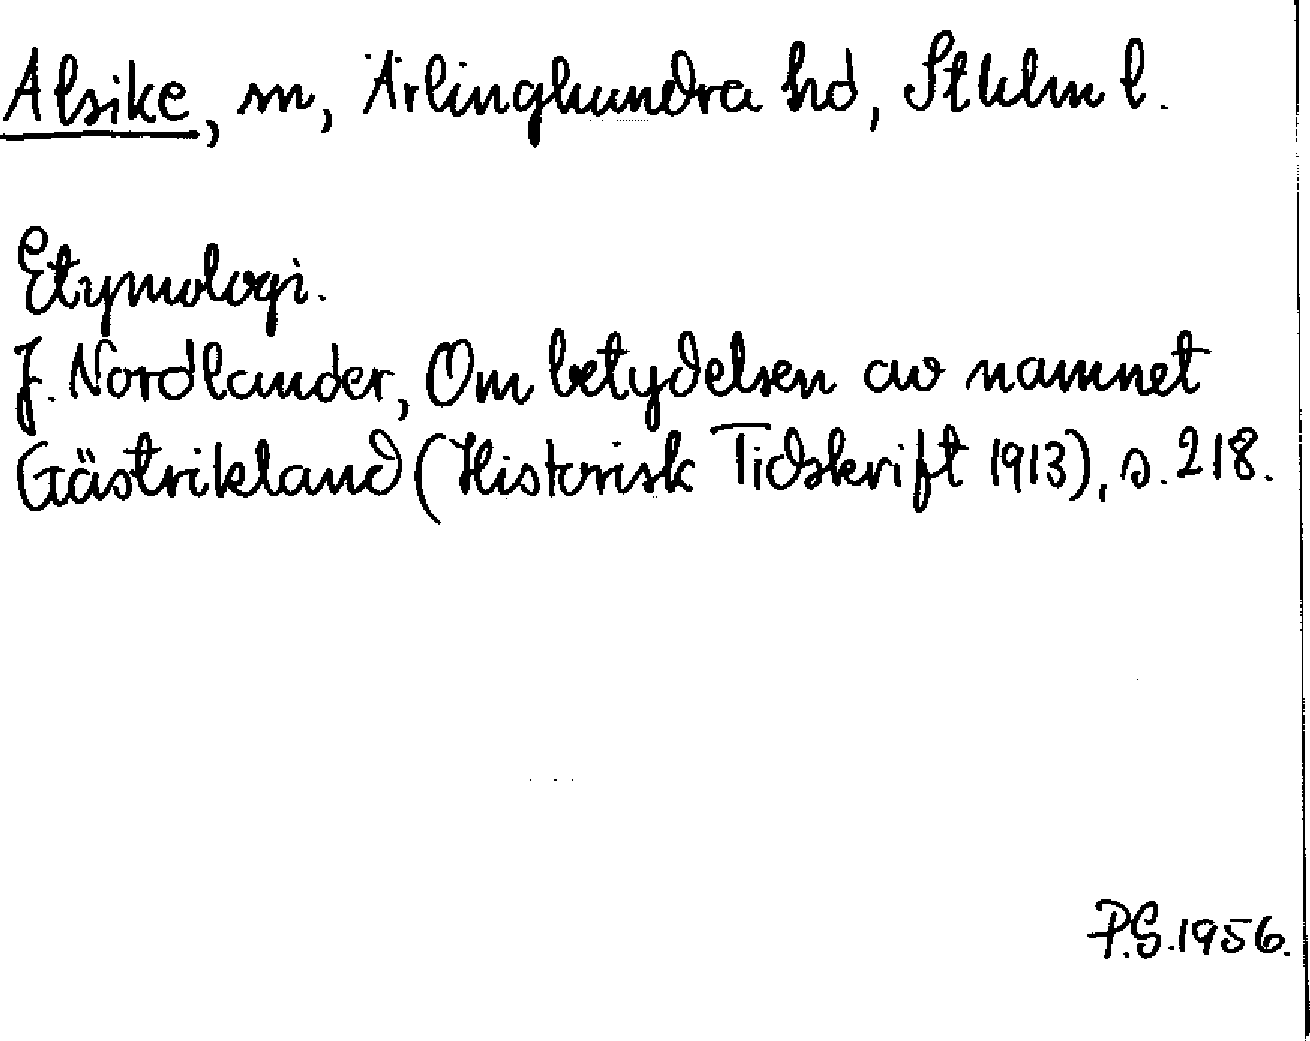 Alsike, sn, Ärlinghundra hd, Stklm l.
Etymologi.
J. Nordlander, Om betydelsen av namnet
Gästrikland (Historisk Tidskrift 1913), s. 218.
P.S. 1956.